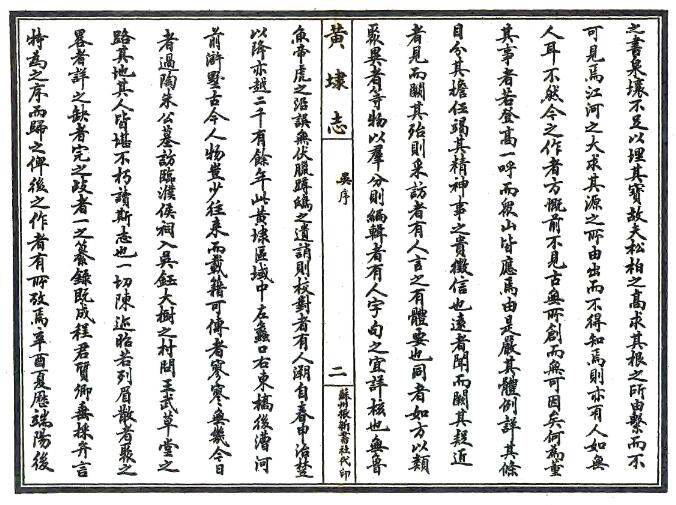 之書泉壤不足以埋其寶故夫松柏之高求其根之所由繫而不
可見焉江河之大求其源之所由出而不得知焉則亦有人如無
人耳不然今之作者方慨前不見古無所創而無可因矣何為董
其事者若登高一呼而眾山皆應焉由是嚴其體例詳其條
目分其擔任竭其精神事之貴徵信也遠者聞而闕其疑近
者見而闕其殆則采訪者有人言之有體要也同者如方以類
聚異者等物以羣分則編輯者有人字句之宜詳核也無魯
黃埭志
吳序
二
蘇州振新書社代印
魚帝虎之沿誤無伏臘蹲鴟之遺誚則校對者有人溯自春申治楚
以降亦越二千有餘年此黃埭區域中左蠡口右東橋後漕河
前滸墅古今人物豈少往來而載籍可傳者寥寥無幾今日
者過陶朱公墓訪臨濮侯祠入吳鈺大樹之村問王武草堂之
路其地其人皆堪不朽讀斯志也一切陳迹昭若列眉散者聚之
畧者詳之缺者完之歧者一之纂錄既成程君質卿無採弁言
特為之序而歸之俾後之作者有所攷焉辛酉夏曆端陽後